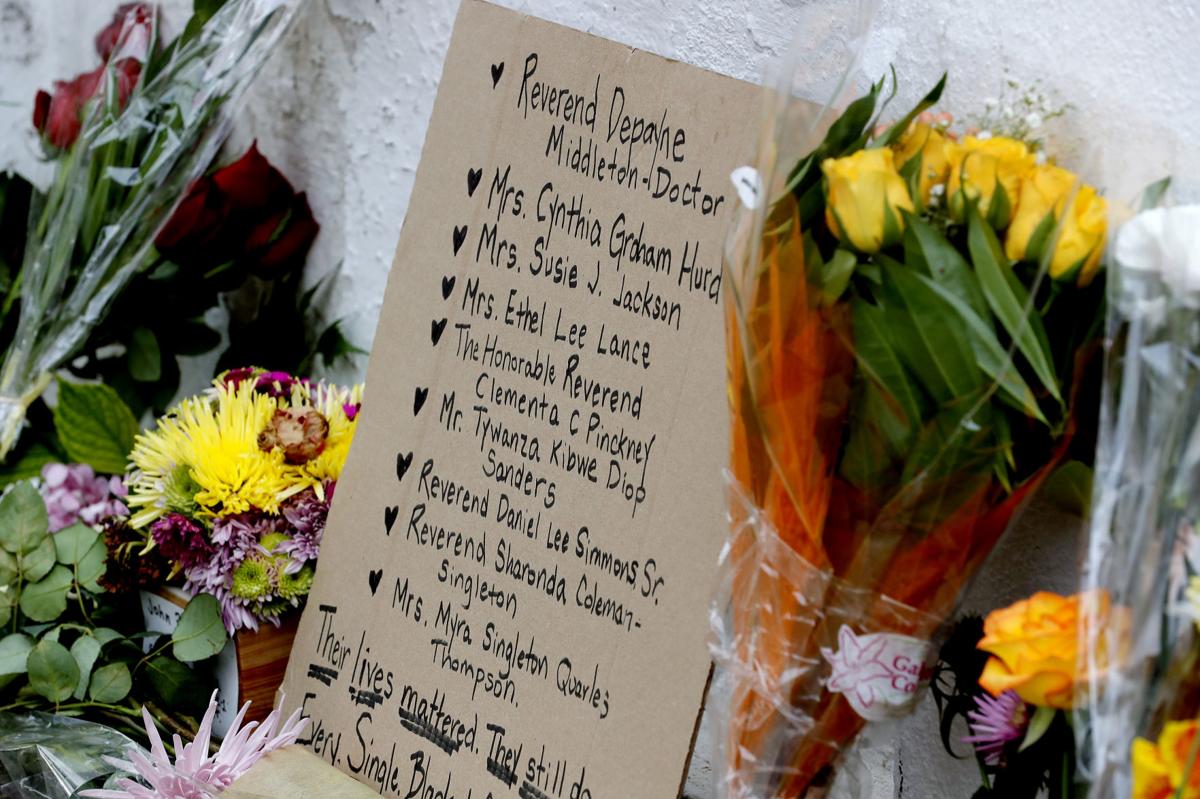 ♥ Reverend Depayne
Middleton-Doctor
♥ Mrs. Cynthia Graham Hurd
♥ Mrs. Susie J. Jackson
♥ Mrs. Ethel Lee Lance
♥ The Honorable Reverend
Clementa C Pinckney
♥ Mr. Tywanza Kibwe Diop
Sanders
♥ Reverend Daniel Lee Simmons Sr.
♥ Reverend Sharonda Coleman-
Singleton
♥ Mrs. Myra Singleton Quarles
Thompson.
Their lives mattered. They still do
Every. Single. Black
John